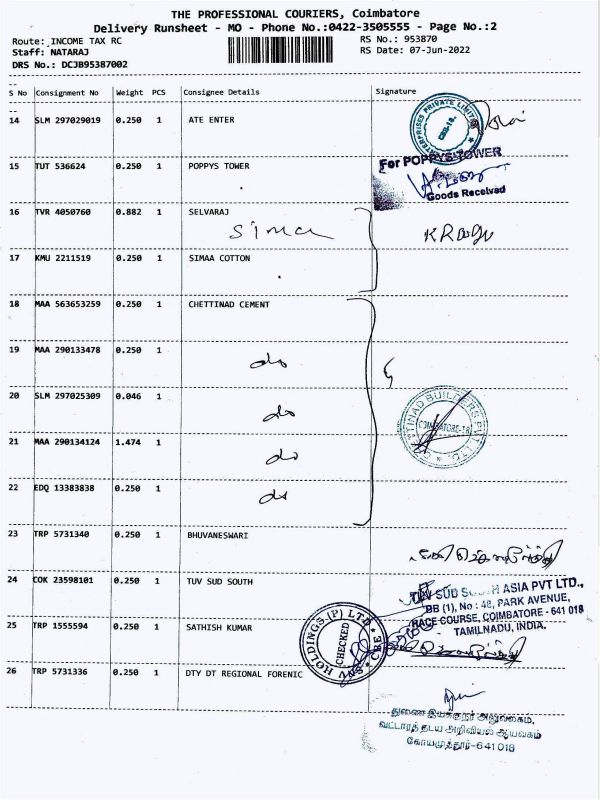 THE PROFESSIONAL COURIERS, Coimbatore
Delivery Runsheet - MO - Phone No.:0422-3505555 - Page No.:2
Route: INCOME TAX RC RS No.: 953870
Staff: NATARAJ RS Date: 07-Jun-2022
DRS No.: DCJB95387002
S No Consignment No Weight PCS Consignee Details Signature
14 SLM 297029019 0.250 1 ATE ENTER
ENTERPRISES PRIVATE LIMITED
CBE-18.
15 TUT 536624 0.250 1 POPPYS TOWER
For POPPYS TOWER
Goods Received
16 TVR 4050760 0.882 1 SELVARAJ
Simaa
17 KMU 2211519 0.250 1 SIMAA COTTON
18 MAA 563653259 0.250 1 CHETTINAD CEMENT
19 MAA 290133478 0.250 1 do
20 SLM 297025309 0.046 1 do
CHETTINAD BUILDERS PVT LTD.
COIMBATORE-18
21 MAA 290134124 1.474 1 do
22 EDQ 13383838 0.250 1 do
23 TRP 5731340 0.250 1 BHUVANESWARI
24 COK 23598101 0.250 1 TUV SUD SOUTH
TUV SUD SOUTH ASIA PVT LTD.,
BB (1), No : 48, PARK AVENUE,
RACE COURSE, COIMBATORE - 641 018
TAMILNADU, INDIA.
25 TRP 1555594 0.250 1 SATHISH KUMAR
SNV HOLDINGS (P) LTD
CBE
CHECKED
26 TRP 5731336 0.250 1 DTY DT REGIONAL FORENIC
துணை இயக்குநர் அலுவலகம்,
வட்டாரத் தடய அறிவியல் ஆய்வகம்
கோயமுத்தூர்-641 018